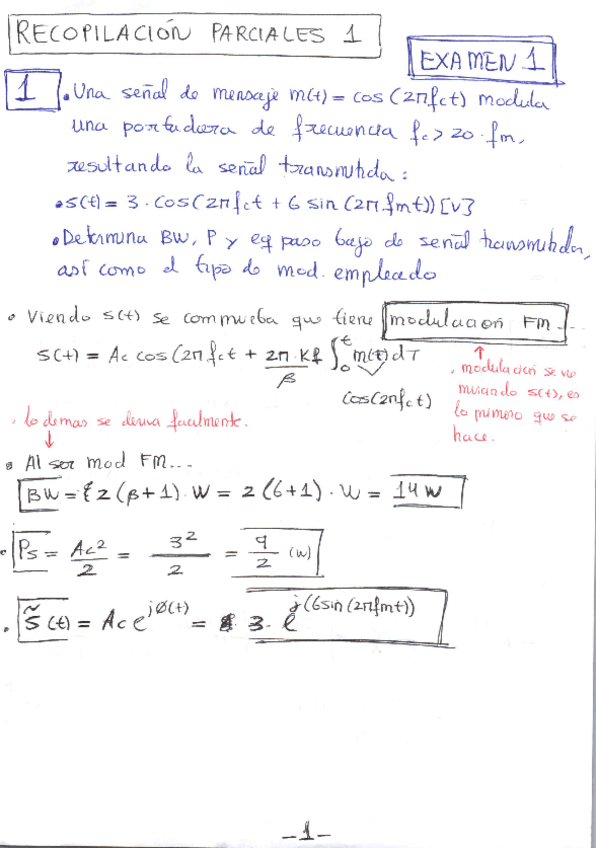 RECOPILACIÓN PARCIALES 1
EXAMEN 1
1 • Una señal de mensaje m(t) = cos (2πfct) modula
una portadora de frecuencia fc > 20·fm,
resultando la señal transmitida:
• s(t) = 3·cos(2πfct + 6 sin (2π.fmt)) [v]
• Determina BW, P y eq paso bajo de señal transmitida,
así como el tipo de mod. empleado
• Viendo s(t) se comprueba que tiene modulación FM...
s(t) = Ac cos(2πfct + 2π·Kf ∫₀ᵗ m(t) dτ
β
cos(2πfct)
↑
, modulación se ve
mirando s(t), es
lo primero que se
hace.
, lo demas se deriva facilmente.
↓
• Al ser mod FM...
BW = {2(β+1)·W = 2(6+1)·W = 14W
• Ps = Ac²/2 = 3²/2 = 9/2 (W)
• s̃(t) = Ac e^jØ(t) = 3· e^j(6sin(2πfmt))
-1-